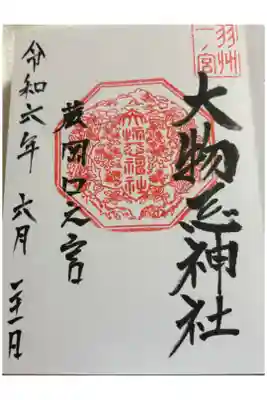 羽州
一ノ宮
大物忌神社
大物忌神社
蕨岡口之宮
令和六年 六月 二十一日